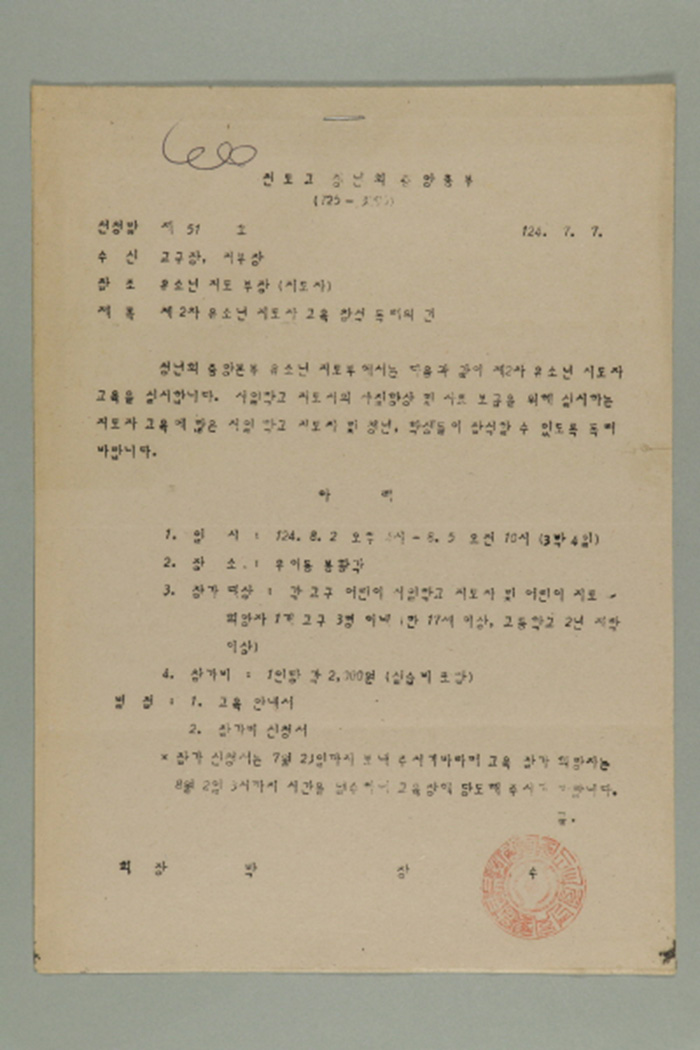 천도교 청년회 중앙본부
천청발 제 51 호 124. 7. 7.
수 신 교구장, 지부장
참 조 유소년 지도 부장 (지도자)
제 목 제2차 유소년 지도자 교육 참석 독려의 건
청년회 중앙본부 유소년 지도부에서는 다음과 같이 제2차 유소년 지도자
교육을 실시합니다. 시일학교 지도자의 자질향상 및 자료 보급을 위해 실시하는
지도자 교육에 많은 시일 학교 지도자 및 청년, 학생들이 참석할 수 있도록 독려
바랍니다.
아 래
1. 일 시 : 124. 8. 2 오후 - 8. 5 오전 10시 (3박 4일)
2. 장 소 : 우이동 봉황각
3. 참가 대상 : 각 교구 어린이 시일학교 지도자 및 어린이 지도
희망자 1개 교구 3명 이내 (만 17세 이상, 고등학교 2년 재학
이상)
4. 참가비 : 1인당 각 2,000원 (실습비 포함)
별 첨 : 1. 교육 안내서
2. 참가비 신청서
* 참가 신청서는 7월 23일까지 보내 주시기바라며 교육 참가 희망자는
8월 2일 3시까지 시간을 엄수하여 교육장에 당도해 주시기 바랍니다.
끝.
회 장 박 장 수